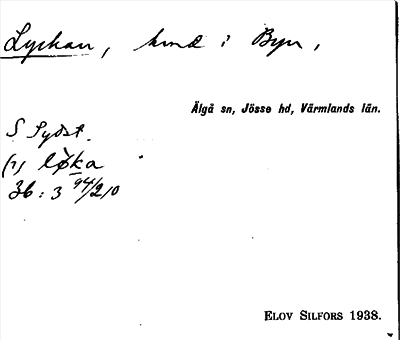 Lyckan, hmd i Byn,
Älgå sn, Jösse hd, Värmlands län.
S Sydst.
(1) løka
3b : 3 94/210
ELOV SILFORS 1938.